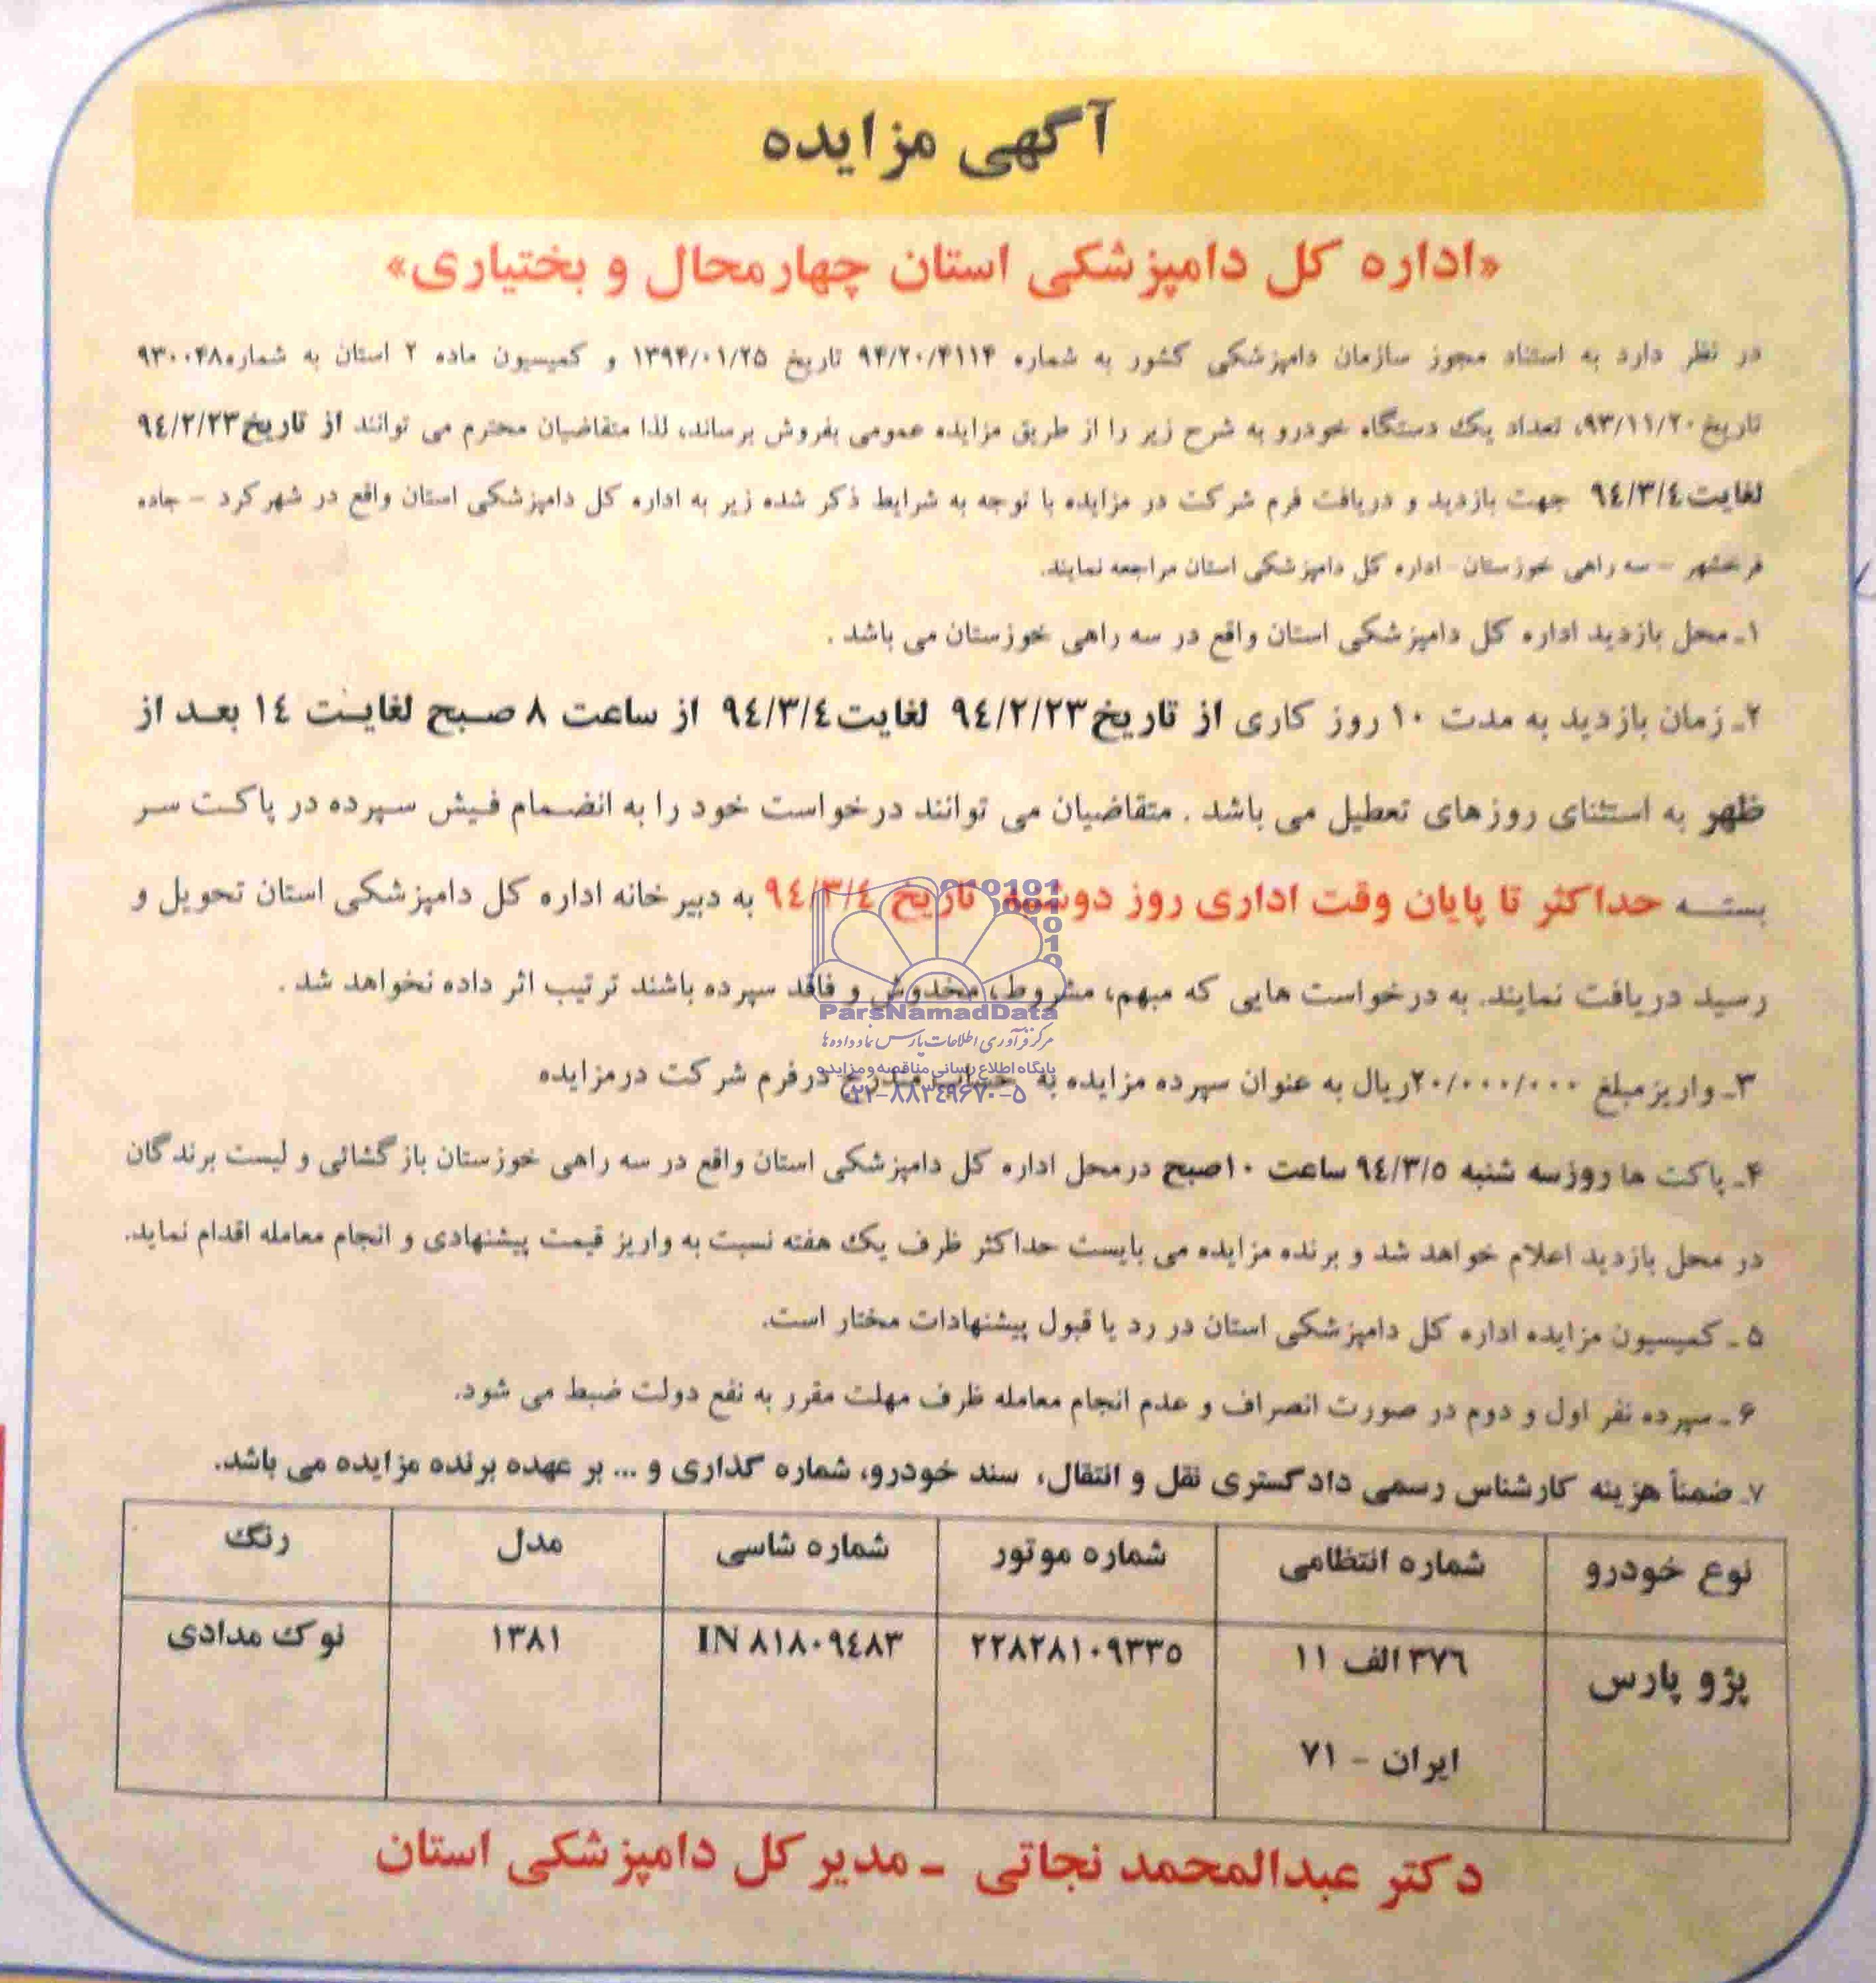 آگهی مزایده
«اداره کل دامپزشکی استان چهارمحال و بختیاری»
در نظر دارد به استناد مجوز سازمان دامپزشکی کشور به شماره ۹۴/۲۰/۴۱۱۴ تاریخ ۱۳۹۴/۰۱/۲۵ و کمیسیون ماده ۲ استان به شماره ۹۳۰۰۴۸
تاریخ ۹۳/۱۱/۲۰، تعداد یک دستگاه خودرو به شرح زیر را از طریق مزایده عمومی بفروش برساند، لذا متقاضیان محترم می توانند از تاریخ ۹٤/۲/۲۳
لغایت ۹٤/۳/٤ جهت بازدید و دریافت فرم شرکت در مزایده با توجه به شرایط ذکر شده زیر به اداره کل دامپزشکی استان واقع در شهرکرد - جاده
فرخشهر - سه راهی خوزستان - اداره کل دامپزشکی استان مراجعه نمایند.
۱- محل بازدید اداره کل دامپزشکی استان واقع در سه راهی خوزستان می باشد .
۲- زمان بازدید به مدت ۱۰ روز کاری از تاریخ ۹٤/۲/۲۳ لغایت ۹٤/۳/٤ از ساعت ۸ صبح لغایت ۱٤ بعد از
ظهر به استثنای روزهای تعطیل می باشد . متقاضیان می توانند درخواست خود را به انضمام فیش سپرده در پاکت سر
بسته حداکثر تا پایان وقت اداری روز دوشنبه تاریخ ۹٤/۳/٤ به دبیرخانه اداره کل دامپزشکی استان تحویل و
رسید دریافت نمایند. به درخواست هایی که مبهم، مشروط، مخدوش و فاقد سپرده باشند ترتیب اثر داده نخواهد شد .
ParsNamadData
مرکز فرآوری اطلاعات پارس نماد داده ها
پایگاه اطلاع رسانی مناقصه و مزایده
۰۲۱-۸۸۳٤۹۶۷۰-۵
۳- واریز مبلغ ۲۰/۰۰۰/۰۰۰ ریال به عنوان سپرده مزایده به حساب مندرج درفرم شرکت درمزایده
۴- پاکت ها روز سه شنبه ۹٤/۳/۵ ساعت ۱۰ صبح درمحل اداره کل دامپزشکی استان واقع در سه راهی خوزستان بازگشائی و لیست برندگان
در محل بازدید اعلام خواهد شد و برنده مزایده می بایست حداکثر ظرف یک هفته نسبت به واریز قیمت پیشنهادی و انجام معامله اقدام نماید.
۵- کمیسیون مزایده اداره کل دامپزشکی استان در رد یا قبول پیشنهادات مختار است.
۶- سپرده نفر اول و دوم در صورت انصراف و عدم انجام معامله ظرف مهلت مقرر به نفع دولت ضبط می شود.
۷- ضمناً هزینه کارشناس رسمی دادگستری نقل و انتقال، سند خودرو، شماره گذاری و ... بر عهده برنده مزایده می باشد.
نوع خودرو شماره انتظامی شماره موتور شماره شاسی مدل رنگ
پژو پارس ۳۷٦ الف ۱۱ ۲۲۸۲۸۱۰۹۳۳۵ IN ۸۱۸۰۹٤۸۳ ۱۳۸۱ نوک مدادی
ایران - ۷۱
دکتر عبدالمحمد نجاتی - مدیرکل دامپزشکی استان